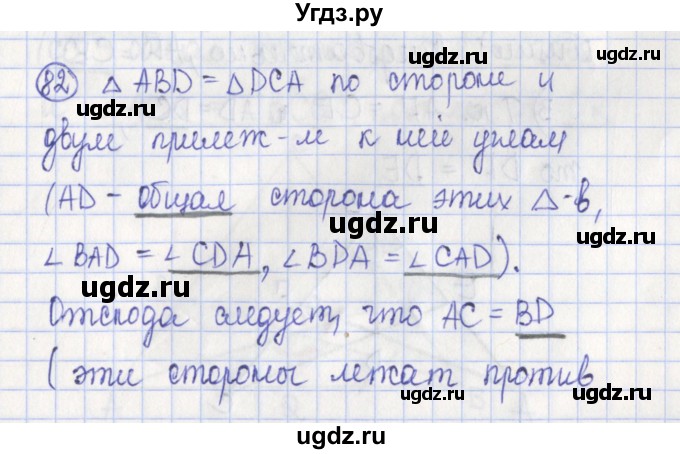 Угдз.ру
82 △ ABD = △ DCA по стороне и
двум прилеж-м к ней углам
(AD - общая сторона этих △-в,
∠ BAD = ∠ CDA, ∠ BDA = ∠ CAD).
Отсюда следует, что AC = BD
(эти стороны лежат против
ugdz.ru
ugdz.ru
ugdz.ru
ugdz.ru
ugdz.ru
ugdz.ru
ugdz.ru
ugdz.ru
ugdz.ru